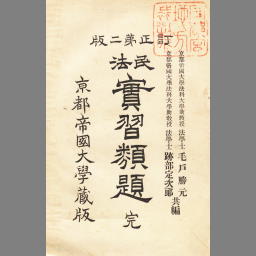 訂正第二版
京都帝國大學法科大學助教授 法學士 毛戶勝元
京都帝國大學法科大學助教授 法學士 跡部定次郎 共編
民法
實習類題 完
京都帝國大學藏版